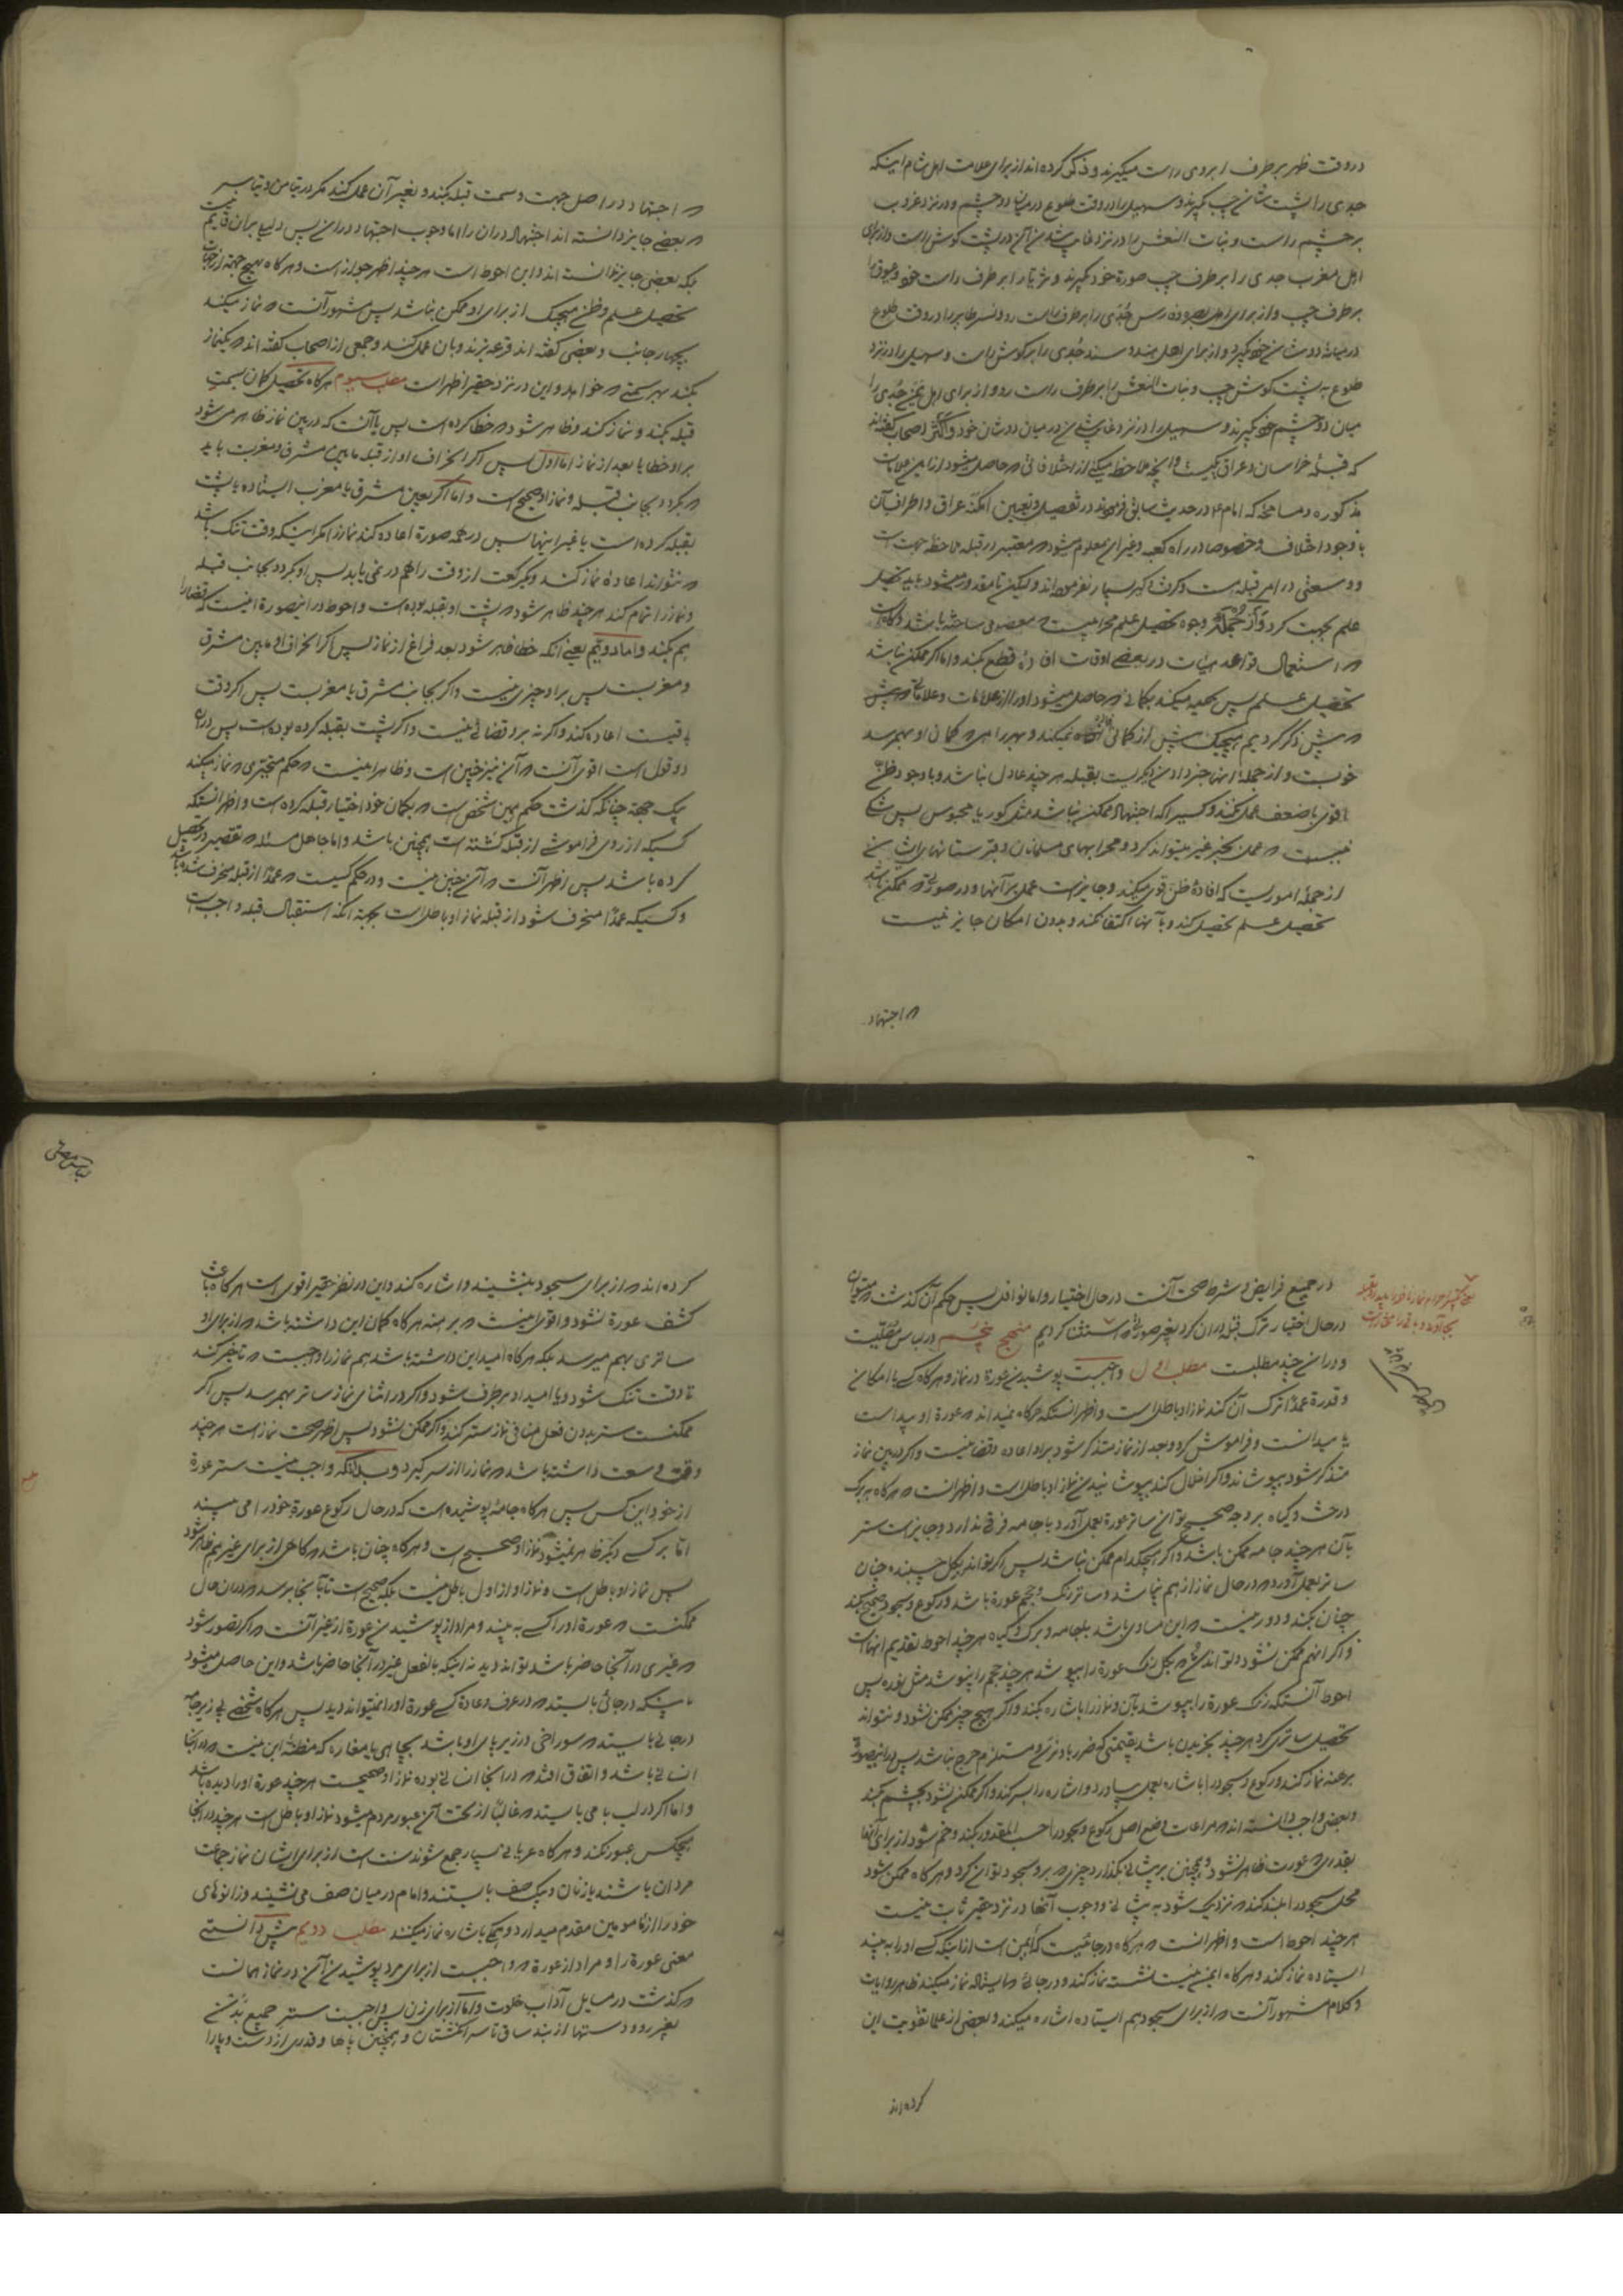 در وقت ظهر بر طرف ابروی راست میگیرند و ذکر کرده‌اند از برای علامت اهل شام اینکه
جدی را پشت شانه چپ گیرند و سهیل را در وقت طلوع در میان دو چشم و در نزد غروب
بر چشم راست و بنات النعش را در نزد غایب شدن آن در پشت گوش راست و از برای
اهل مغرب جدی را بر طرف چپ صورة خود گیرند و ثریا را بر طرف راست خود و عیوق را
بر طرف چپ و از برای اهل
در میانه دو شانه خود گیرد و از برای اهل هند و سند جُدَی را بر گوش راست و سهیل را در نزد
طلوع به پشت گوش چپ و بنات النعش را بر طرف راست رو و از برای اهل یمن جُدَی را
میان دو چشم خود گیرند و سهیل را در نزد غایب شدن در میان دو شان خود و اکثر اصحاب گفته‌اند
که قبلهٔ خراسان و عراق یکیست و آنچه ملاحظه میکنی از اختلافاتی که حاصل میشود از این علامات
مذکوره و مسامحهٔ که امام ع در حدیث سابق فرموند در تفصیل و تعیین امکنه عراق و اطراف آن
با وجود اختلاف و خصوصا در راه کعبه و غیر آن معلوم میشود که معتبر در قبله ملاحظه جهت است
و وسعتی در امر قبله است و کسر بسیار نفرموده‌اند ولیکن تا مقدور میشود باید تحصیل
علم بجهت کرد و از جُملهٔ وجوه تحصیل علم محرابیست که معصومی ساخته باشد و گاه است
که استعمال قواعد هیات در بعضی اوقات افادهٔ قطع بکند و اما اگر ممکن نباشد
تحصیل علم پس جهد میکند بگمانی که حاصل میشود او را از علامات و علاماتی که پیش
که پیش ذکر کردیم هیچیک بیش از گمانی افاده نمیکند و بهر راهی که گمان او بهم رسد
خوبست و از جملهٔ اینها خبر دادن دیگریست بقبله هر چند عادل نباشد و با وجود ظنّ
اقوی باضعف عمل نکند و کسیرا که اجتهاد ممکن نباشد مثل کور یا محبوس پس شکی
نیست که عمل بخبر غیر میتواند کرد و محرابهای مسلمانان و قبرستانهای ایشان
از جملهٔ اموریست که افادهٔ ظن قوی میکند و جایز است عمل بر آنها و در صورتی که ممکن باشد
تحصیل علم تحصیل کند و با آنها اکتفا نکند و بدون امکان جایز نیست
که اجتهاد
که اجتهاد در اصل جهت و سمت قبله بکند و بغیر آن عمل کند مگر در تیامن و تیاسر
که بعضی جایز دانسته‌اند اجتهاد در آن را اما وجوب اجتهاد در این پس دلیلی بر آن قایم نیست
بلکه بعضی جایز ندانسته‌اند و این احوط است هر چند اظهر جواز است و هر گاه بهیچ جهة از جهات
تحصیل علم و ظن هیچیک از برای او ممکن نباشد پس مشهور آنست که نماز میکند
بچهار جانب و بعضی گفته‌اند قرعه بزند و بان عمل کند و جمعی از اصحاب گفته‌اند که یکنماز
بکند بهر سمتی که خواهد و این در نزد حقیر اظهر است مطلب سیوم هر گاه تحصیل گمان بسمت
قبله بکند و نماز کند و ظاهر شود که خطا کرده است پس یا آنست که در بین نماز ظاهر میشود
بر او خطا یا بعد از نماز اما اول پس اگر انحراف او از قبله مابین مشرق و مغربست باید
که بگردد بجانب قبله و نماز او صحیح است و اما اگر بعین مشرق یا مغرب ایستاده یا پشت
بقبله کرده است یا غیر اینها پس در همه صورة اعاده کند نماز را مگر اینکه وقت تنگ باشد
که نتواند اعادهٔ نماز کند و یکرکعت از وقت را هم در نمی یابد پس او بگردد بجانب قبله
و نماز را تمام کند هر چند ظاهر شود که پشت او بقبله بوده است و احوط در اینصورة اینست که قضا را
هم بکند و اما دویّم یعنی آنکه خطا ظاهر شود بعد فراغ از نماز پس اگر انحراف او مابین مشرق
و مغربست پس بر او چیزی نیست و اگر بجانب مشرق یا مغربست پس اگر وقت
باقیست اعاده کند و اگر نه بر او قضائی نیست و اگر پشت بقبله کرده بوده است پس در آن
دو قول است اقوی آنست که آن نیز چنین است و ظاهرا نیست که حکم متحیّری که نماز میکند
بیک جهة چنانکه گذشت حکم همین شخص است که بگمان خود اختیار قبله کرده است و اظهر آنستکه
کسیکه از روی فراموشی از قبله گشته است همچنین باشد و اما جاهل مسئله که تقصیر در تحصیل
کرده باشد پس اظهر آنست که آن چنین نیست و در حکم کسیست که عمدًا از قبله منحرف شده باشد
و کسیکه عمدًا منحرف شود از قبله نماز او باطل است بجهة آنکه استقبال قبله واجب است
در جمیع فرایض و شرط صحت آنست در حال اختیار و اما نوافل پس حکم آن گذشت که میتوان
در حال اختیار ترک قبله در آن کرد بغیر صورتی که استثنا کردیم منهج پنجم در لباس مصلیست
و در آن چند مطلبست مطلب اول واجبست پوشیدن عورة در نماز و هر گاه کسی با امکان
و قدرة عمدًا ترک آن کند نماز او باطل است و اظهر آنستکه هر گاه نمیداند که عورة او پیداست
یا میدانست و فراموش کرد و بعد از نماز متذکر شود بر او اعاده و قضا نیست و اگر در بین نماز
متذکر شود بپوشاند و اگر اخلال کند بپوشانیدن نماز او باطل است و اظهر آنست که هر گاه ببرگ
درخت و گیاه بر وجه صحیح توان ساتر عورة بعمل آورد با جامه فرقی ندارد و جایز است ستر
بآن هر چند جامه ممکن باشد و اگر هیچکدام ممکن نباشد پس اگر تواند بگل چسبنده چنان
ساتر بعمل آورد که در حال نماز از هم نپاشد و ساتر رنگ و حجم عورة باشد و رکوع و سجود صحیح کند
چنان بکند و دور نیست که این مساوی باشد بجامه و برگ و گیاه هر چند احوط تقدیم آنهاست
و اگر آنهم ممکن نشود و تواند که بگل رنگ عورة را بپوشد هر چند حجم را نپوشد مثل نوره پس
احوط آنستکه رنگ عورة را بپوشد بآن و نماز را باشاره بکند و اگر هیچ چیز ممکن نشود و نتواند
تحصیل ساتری کرد هر چند بخریدن باشد بقیمتی که ضرر باو نرسد و مستلزم حرج نباشد پس در اینصورة
برهنه نماز کند و رکوع و سجود را باشاره بعمل بیاورد و اشاره را بسر کند و اگر ممکن نشود بچشم کند
و بعضی واجب دانسته‌اند که مراعات وضع اصل رکوع و سجود را حسب المقدور بکند و خم شود از برای آنها
بقدری که عورت ظاهر نشود و همچنین بر پیشانی بگذارد چیزی که بر او سجود توان کرد و هر گاه ممکن شود
محل سجود را بلند کند که نزدیک شود به پیشانی و وجوب آنها در نزد حقیر ثابت نیست
هر چند احوط است و اظهر آنست که هر گاه در جائیست که ایمن است از اینکه کسی او را به بیند
ایستاده نماز کند و هر گاه ایمن نیست نشسته نماز کند و در جائی که ایستاده نماز میکند ظاهر روایات
و کلام مشهور آنست که از برای سجود هم ایستاده اشاره میکند و بعضی از علما تقویت این
کرده‌اند
لباس مصلی
کرده‌اند که از برای سجود بنشیند و اشاره کند و این در نظر حقیر اقوی است هر گاه باعث
کشف عورة نشود و اقوی اینست که برهنه هر گاه گمان این داشته باشد که از برای او
ساتری بهم میرسد بلکه هر گاه امید این داشته باشد هم نماز را واجبست که تاخیر کند
تا وقت تنگ شود و یا امید او بر طرف شود و اگر در اثنای نماز ساتر بهمرسد پس اگر
ممکنست ستر بدون فعل منافی نماز ستر کند و اگر ممکن نشود پس اظهر صحت نماز است هر چند
وقت وسعت داشته باشد که نماز را از سر گیرد و بدانکه واجب نیست ستر عورة
از خود این کس پس هر گاه جامهٔ پوشیده است که در حال رکوع عورة خود را می بیند
اما بر کسی دیگر ظاهر نمیشود نماز او صحیح است و هر گاه چنان باشد که گاهی از برای غیر هم ظاهر شود
پس نماز او باطل است و نماز او از اول باطل نیست بلکه صحیح است تا بآنجا برسد که در آن حال
ممکنست که عورة او را کسی به بیند و مراد از پوشیدن عورة از غیر آنست که اگر تصور شود
که غیری در آنجا حاضر باشد تواند دید نه اینکه بالفعل غیر در آنجا حاضر باشد و این حاصل میشود
باینکه در جائی بایستد که در عرف و عادة کسی عورة او را نمیتواند دید پس هر گاه شخصی بی زیر جامه
در جائی بایستد که سوراخی در زیر پای او باشد بچاهی یا مغاره که مظنهٔ این نیست که در آنجا
انسانی باشد و اتفاق افتد که در آنجا انسانی بوده نماز او صحیحست هر چند عورة او را دیده باشد
و اما اگر در لب بامی بایستد که غالبًا از تحت آن عبور مردم میشود نماز او باطل است هر چند در آنجا
هیچکس عبور نکند و هر گاه عریانی بسیار جمع شوند سنت است از برای ایشان نماز جماعت
مردان باشند یا زنان و بیک صف بایستند و امام در میان صف می نشیند و زانوهای
خود را از مامومین مقدم میدارد و همگی باشاره نماز میکنند مطلب دویم پیش دانستی
معنی عورة را و مراد از عورة که واجبست از برای مرد پوشیدن آن در نماز همانست
که گذشت در مسایل آداب خلوت و اما از برای زن پس واجبست ستر جمیع بدن
بغیر رو و دستها از بند ساق تا سر انگشتان و همچنین پاها و قدری از دست و پا را